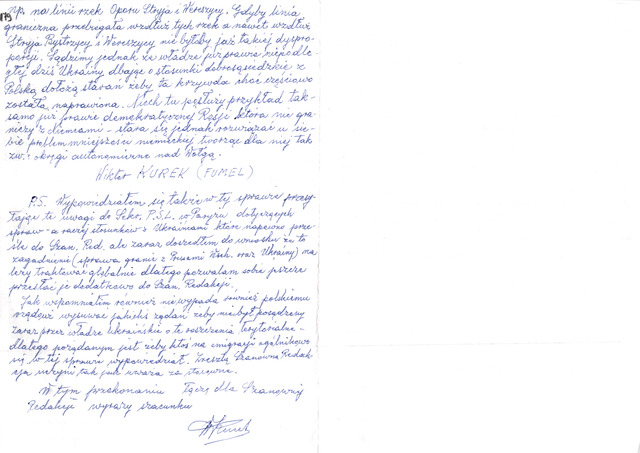 np. na linii rzek Oporu Stryja i Wereszycy. Gdyby linia
graniczna przebiegała wzdłuż tych rzek a nawet wzdłuż
Stryja Bystrzycy i Wereszycy nie byłoby już takiej dyspro-
porcji. Sądzimy jednak że władze już prawie niepodle-
głej dziś Ukrainy dbając o stosunki dobrosąsiedzkie z
Polską dołożą starań żeby ta krzywda choć częściowo
została naprawiona. Niech tu posłuży przykład tak-
samo już prawie demokratycznej Rosji która nie gra-
niczy z Niemcami - stara się jednak rozwiązać u sie-
bie problem mniejszości niemieckiej tworząc dla niej tak
zw. okręgi autonomiczne nad Wołgą.
Wiktor KUREK (FUMEL)
P.S. Wypowiedziałem się także w tej sprawie przesy-
łając te uwagi do Sekr. P.S.L. w Paryżu dotyczących
spraw - a raczej stosunków z Ukraińcami które napewno prze-
śle do Szan. Red. ale zaraz doszedłem do wniosku że to
zagadnienie (sprawa granic z Prusami Wsch. oraz Ukrainy) na-
leży traktować globalnie dlatego pozwalam sobie jeszcze
przesłać je dodatkowo do Szan. Redakcji.
Jak wspomniałem również nie wypada również polskiemu
rządowi wysuwać jakichś żądań żeby nie był posądzony
zaraz przez władze Ukraińskie o te roszczenia terytorialne -
dlatego pożądanym jest żeby ktoś na emigracji ogólnikowo
się w tej sprawie wypowiedział. Zresztą Szanowna Redak-
cja uczyni tak jak uważa za stosowne.
W tym przekonaniu łączę dla Szanownej
Redakcji wyrazy szacunku
WKurek